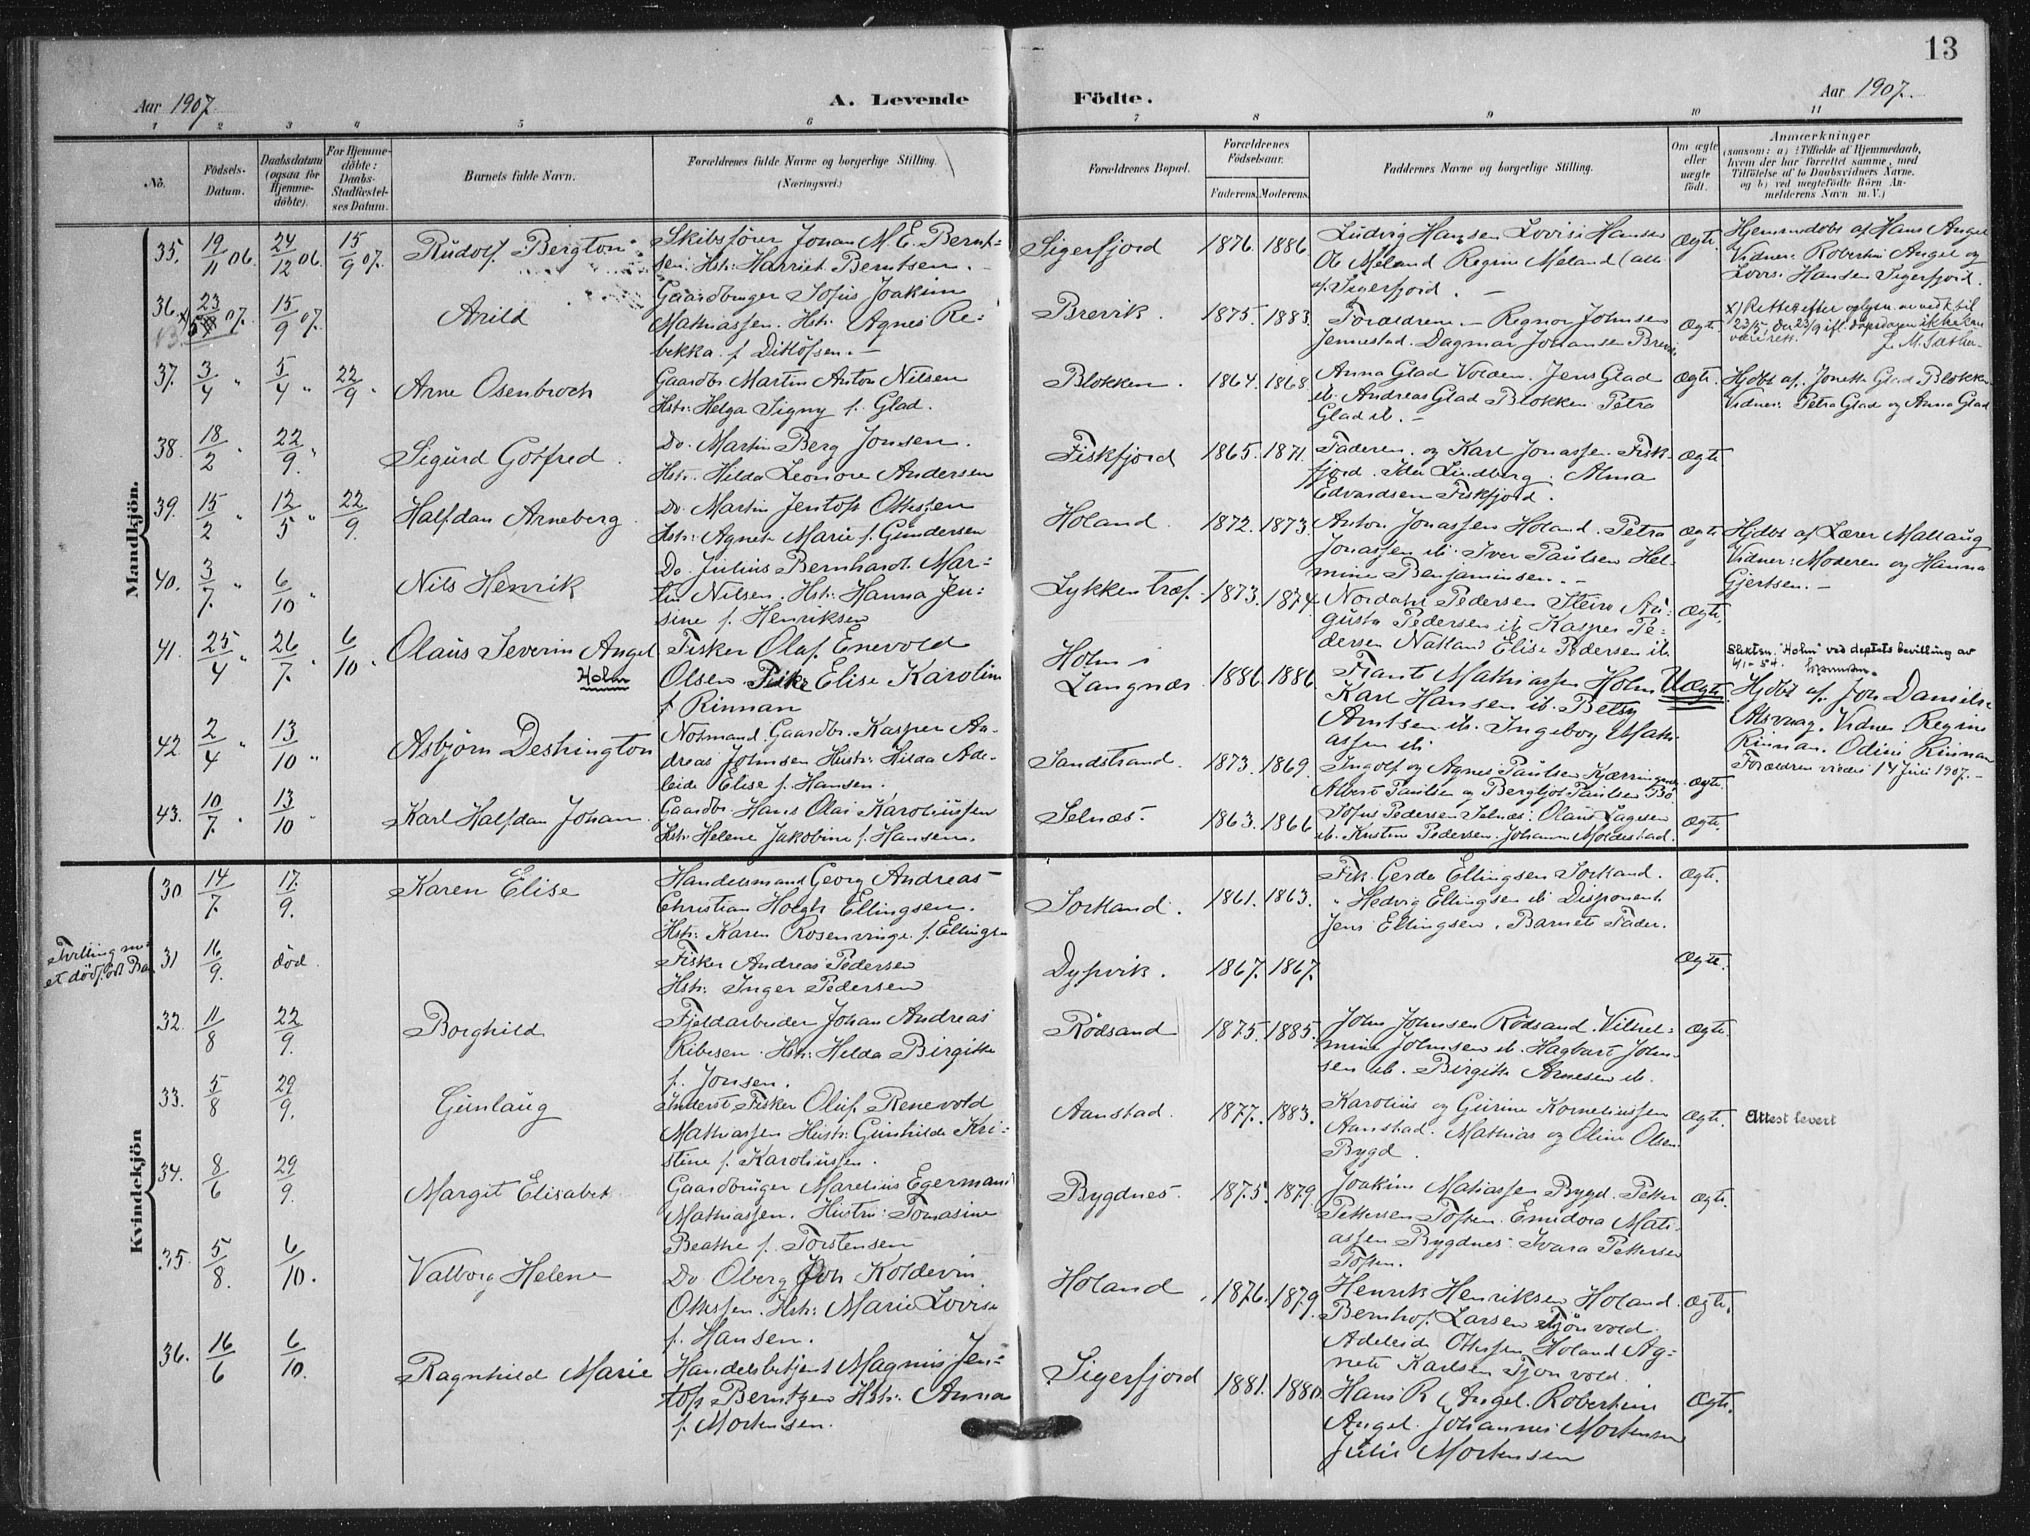 13
Aar 1907.
A. Levende Födte.
Aar 1907.
1 2 3 4 5 6 7 8 9 10 11
No.
Födsels-Datum.
Daabsdatum (ogsaa for Hjemme-döbte).
For Hjemme-döbte: Daabs-Stadfæstel-ses Datum.
Barnets fulde Navn.
Forældrenes fulde Navne og borgerlige Stilling.
(Næringsvei.)
Forældrenes Bopæl.
Forældrenes Födselsaar.
Faderens. Moderens.
Faddernes Navne og borgerlige Stilling.
Om ægte eller uægte födt.
Anmærkninger
(saasom: a) i Tilfælde af Hjemmedaab,
hvem der har forrettet samme, med
Tilföielse af to Daabsvidners Navne.
og b) ved uægtefödte Börn An-
melderens Navn m. V.)
Mandkjön.
35. 19/11 06. 24/12 06. 15/9 07. Rudolf Bergton
Skibsfører Johan M. E. Bernt-
sen. Hstr: Harriet Berntsen.
Sigerfjord 1876. 1886
Ludvig Hansen Lovise Hansen
Ole Meland Regine Meland (alle
af Sigerfjord.
Ægte.
Hjemmedøbt af Hans Angel
Vidner: Robertine Angel og
Lovise Hansen Sigerfjord.
36. x) 23/5 07. 15/9 07. Arild
Gaardbruger Sofus Joakim
Mathiassen. Hstr: Agnes Re-
bekka f. Ditlofsen.
Brevik. 1875. 1883.
Forældrene. Regnor Johnsen
Jennestad. Dagmar Johansen Brevik.
Ægte.
x) Rettet efter oplysn.
L. M. Sæther
37. 3/4 " 5/4 " 22/9 " Arne Osenbroch
Gaardbr. Martin Anton Nilsen
Hstr: Helga Signy f. Glad.
Blokken. 1864. 1868.
Anna Glad Volden. Jens Glad
ib. Andreas Glad Blokken. Petra
Glad ib.
Ægte.
Hjdbt af. Jonette Glad Blokken
Vidner: Petra Glad og Anna Glad
38. 18/2 " 22/9 " Sigurd Gotfred.
Do. Martin Berg Jonsen.
Hstr: Hilda Leonore Andersen
Fiskfjord 1865. 1871.
Faderen. og Karl Jonassen Fisk-
fjord. Ida Lindberg. Alma
Edvardsen Fiskfjord.
Ægte
39. 15/2 " 12/5 " 22/9 Halfdan Arneberg.
Do. Martin Jentoft Ottesen
Hstr: Agnete Marie f. Gundersen
Holand. 1872. 1873.
Anton Jonassen Holand. Petra
Jonassen ib. Iver Paulsen Hel-
mine Benjaminsen.
Ægte
Hjdbt af Lærer Mallaug
Vidner: Moderen og Hanna
Gjertsen.
40. 3/7 " 6/10 " Nils Henrik
Do. Julius Bernhard Mar-
tin Nilsen. Hstr: Hanna Jen-
sine f. Henriksen
Lykkentræf. 1873. 1874.
Nordahl Pedersen Steiro Au-
gusta Pedersen ib. Kasper Pe-
dersen Natland Elise Pedersen ib.
Ægte.
41. 25/4 " 26/7 " 6/10 " Olaus Severin Angel
Holm
Fisker Olaf Enevold
Olsen Pike Elise Karoline
f Rinnan
Holm i
Langnæs 1886 1886
Frants Mathiassen Holm
Karl Hansen ib. Betsy
Arntsen ib. Ingeborg Math-
assen ib.
Uægte
Slektsn. "Holm" ved deptets bevilling av
4/1-54.
Hjdbt af. Joh Daniels
Vidner Regine
Rinnan. Odine Rinnan
Forældren viedes 14 Juli 1907.
42. 2/4 " 13/10 " Asbjörn Deshington
Notmand, Gaardbr. Kasper An-
dreas Johnsen Hustr: Hilda Ade-
leide Elise f. Hansen.
Sandstrand. 1873. 1869.
Ingolf og Agnes Paulsen
Albert Paulsen og Bergljot Paulsen Bø
Ægte.
43. 10/7 " 13/10 " Karl Halfdan Johan
Gaardbr. Hans Olai Karoliussen
Hstr: Helene Jakobine f. Hansen.
Selnæs. 1863. 1866
Sofus Pedersen Selnæs. Olaus Lagesen
ib. Kristine Pedersen. Johanna Moldestad.
Ægte.
Kvindekjön
30 14/7. 17/9. Karen Elise
Handelsmand Georg Andreas
Christian Holgh Ellingsen.
Hstr: Karen Rosenvinge f. Ellingsen
Sortland. 1861. 1863.
Frk. Gerda Ellingsen Sortland.
" Hedvig Ellingsen ib Disponent
Jens Ellingsen. Barnets Fader.
Ægte.
Tvilling m.
et dødf. født Barn
31 16/9. död.
Fisker Andreas Pedersen
Hstr: Inger Pedersen
Dypvik. 1867. 1867.
Ægte.
32. 11/8 22/9. Borghild
Fjeldarbeider Johan Andreas
Ribesen. Hstr: Helda Birgitte
f. Jonsen.
Rödsand 1875. 1885.
John Johnsen Rödsand. Vilhel-
mine Johnsen ib. Hagbart John-
sen ib. Birgitte Arnesen ib.
Ægte.
33. 5/8 29/9. Gunlaug
Inderst Fisker Oluf Renevold
Mathiassen Hustr: Gunhilde Kri-
stine f. Karoliussen.
Aanstad. 1877. 1883.
Karolius og Gurine Korneliussen
Aanstad. Mathias og Oline Olsen
Bygd.
Ægte.
Attest levert
34. 8/6 29/9. Margit Elisabet
Gaardbruger Marelius Egermand
Mathiassen. Hustru: Tomasine
Beathe f. Torstensen
Bygdnes. 1875. 1879.
Joakim Matiassen Bygd. Petter
Pettersen Toften. Emidora Mati-
assen Bygdnes. Ivara Pettersen
Toften.
Ægte.
35. 5/8. 6/10. Valborg Helene
Do Oberg Joh Koldevin
Ottessen. Hstr: Marie Lovise
f. Hansen.
Holand 1876. 1879.
Henrik Henriksen Holand.
Bernhof. Larsen Tjönvold.
Adeleide Ottessen Holand Ag-
nete Karlsen Tjonvold.
Ægte.
36. 16/6 6/10. Ragnhild Marie
Handelsbetjent Magnus Jen-
toft Berntzen Hstr: Anna
f. Mortensen.
Sigerfjord 1881. 1880.
Hans R. Angel. Robertine
Angel. Johannes Mortensen
Julie Mortensen
Ægte.